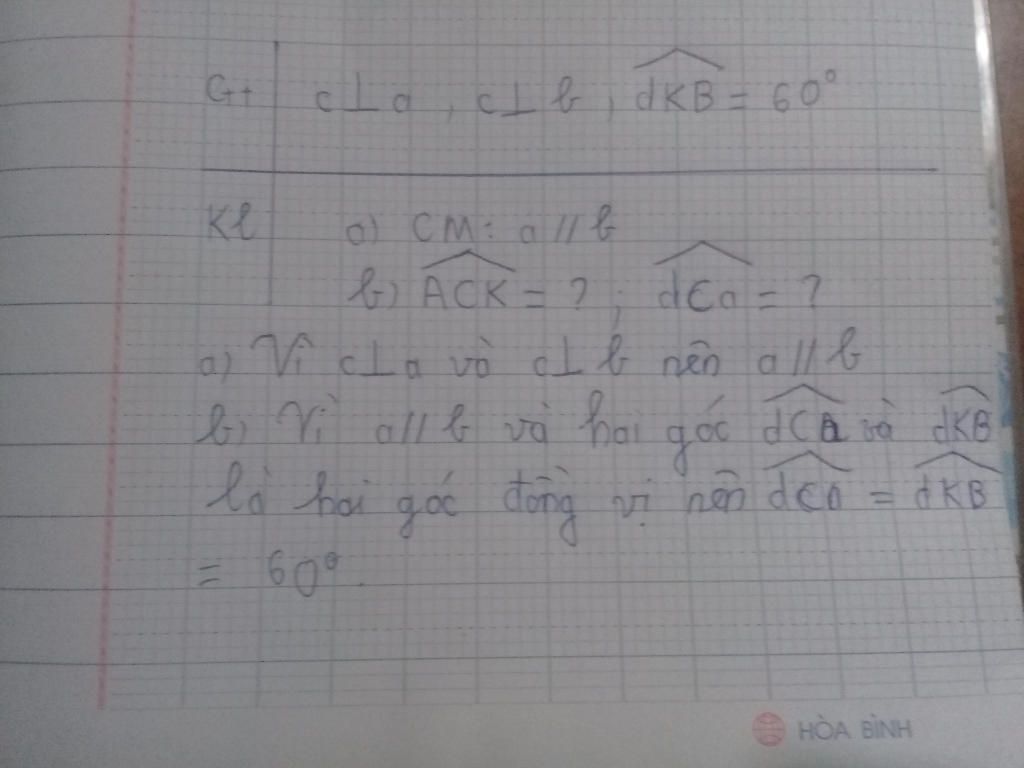 Gt c⊥a, c⊥b, dKB = 60°
Kl a) CM: a//b
b) ACK = ?; dCa = ?
a) Vì c⊥a và c⊥b nên a//b
b) Vì a//b và hai góc dCa và dKB
là hai góc đồng vị nên dCa = dKB
= 60°.
HÒA BÌNH